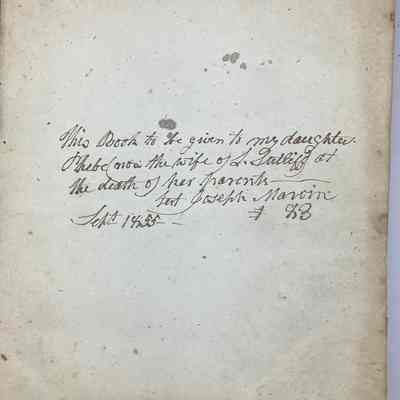 This Book to be given to my daughter
Phebe now the wife of L. at
the death of her parents
Joseph Marvin
Sept 1855